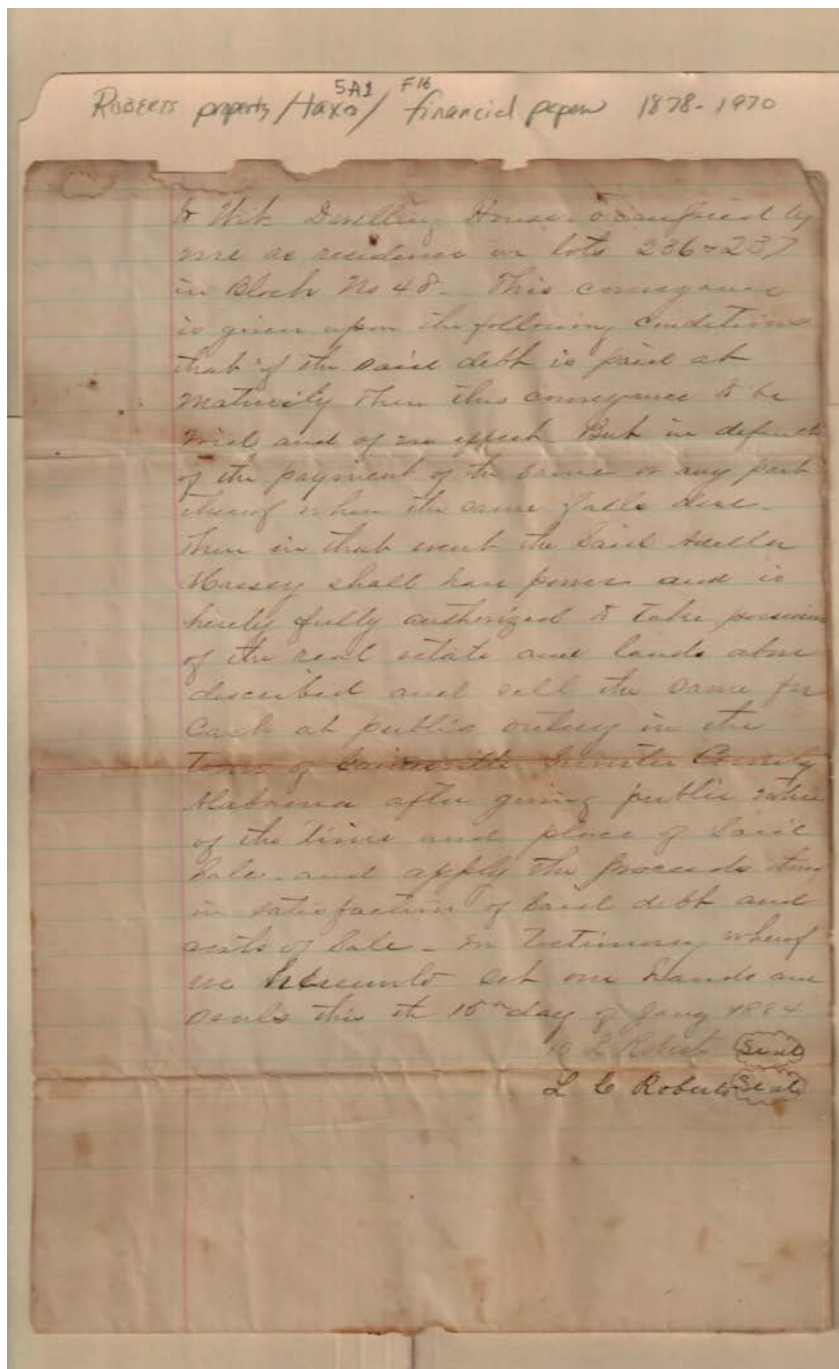 5A1 F16
ROBERTS property / taxes / financial papers 1878-1970
to Wit Dwelling House occupied by
me as residence on lots 236 & 237
in Block No 48 - This conveyance
is given upon the following conditions
that if the said debt is paid at
maturity then this conveyance to be
void and of no effect But in default
of the payment of the same or any part
thereof when the same falls due -
Then in that event the said
Massey shall have power and is
hereby fully authorized to take possession
of the real estate and lands above
described and sell the same for
Cash at public outcry in the
Town of Gainesville Sumter County
Alabama after giving public notice
of the time and place of said
Sale - and apply the proceeds
in satisfaction of said debt and
costs of Sale - In Testimony whereof
we hereunto set our hands and
seals this the 15th day of Jany 1884
L Roberts Seal
L C Roberts Seal